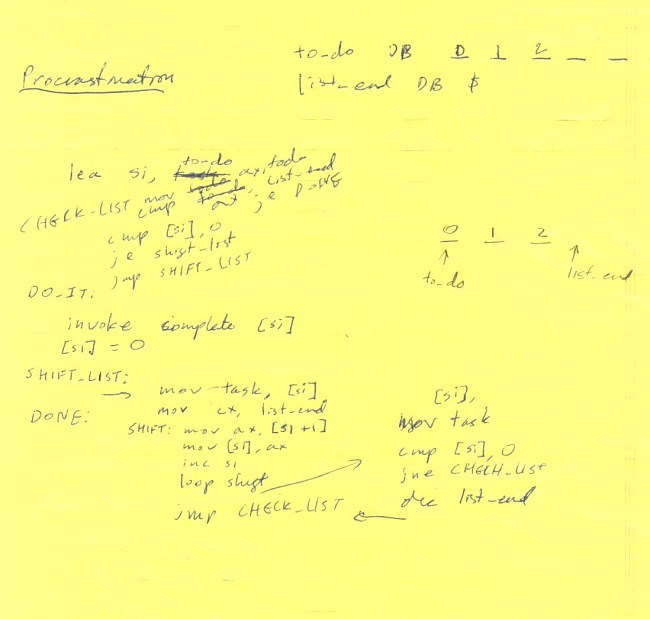 to-do DB 0 1 2 _ _
Procrastination
list-end DB $
lea si, to-do
CHECK-LIST mov ax, todo
cmp ax, list-end
je DONE
cmp [si], 0
je shift-list
jmp SHIFT_LIST
0 1 2
to-do
list-end
DO-IT:
invoke complete [si]
[si] = 0
SHIFT_LIST:
mov task, [si]
mov cx, list-end
DONE:
SHIFT: mov ax, [si+1]
mov [si], ax
inc si
loop shift
jmp CHECK_LIST
[si],
mov task
cmp [si], 0
jne CHECK-LIST
dec list-end